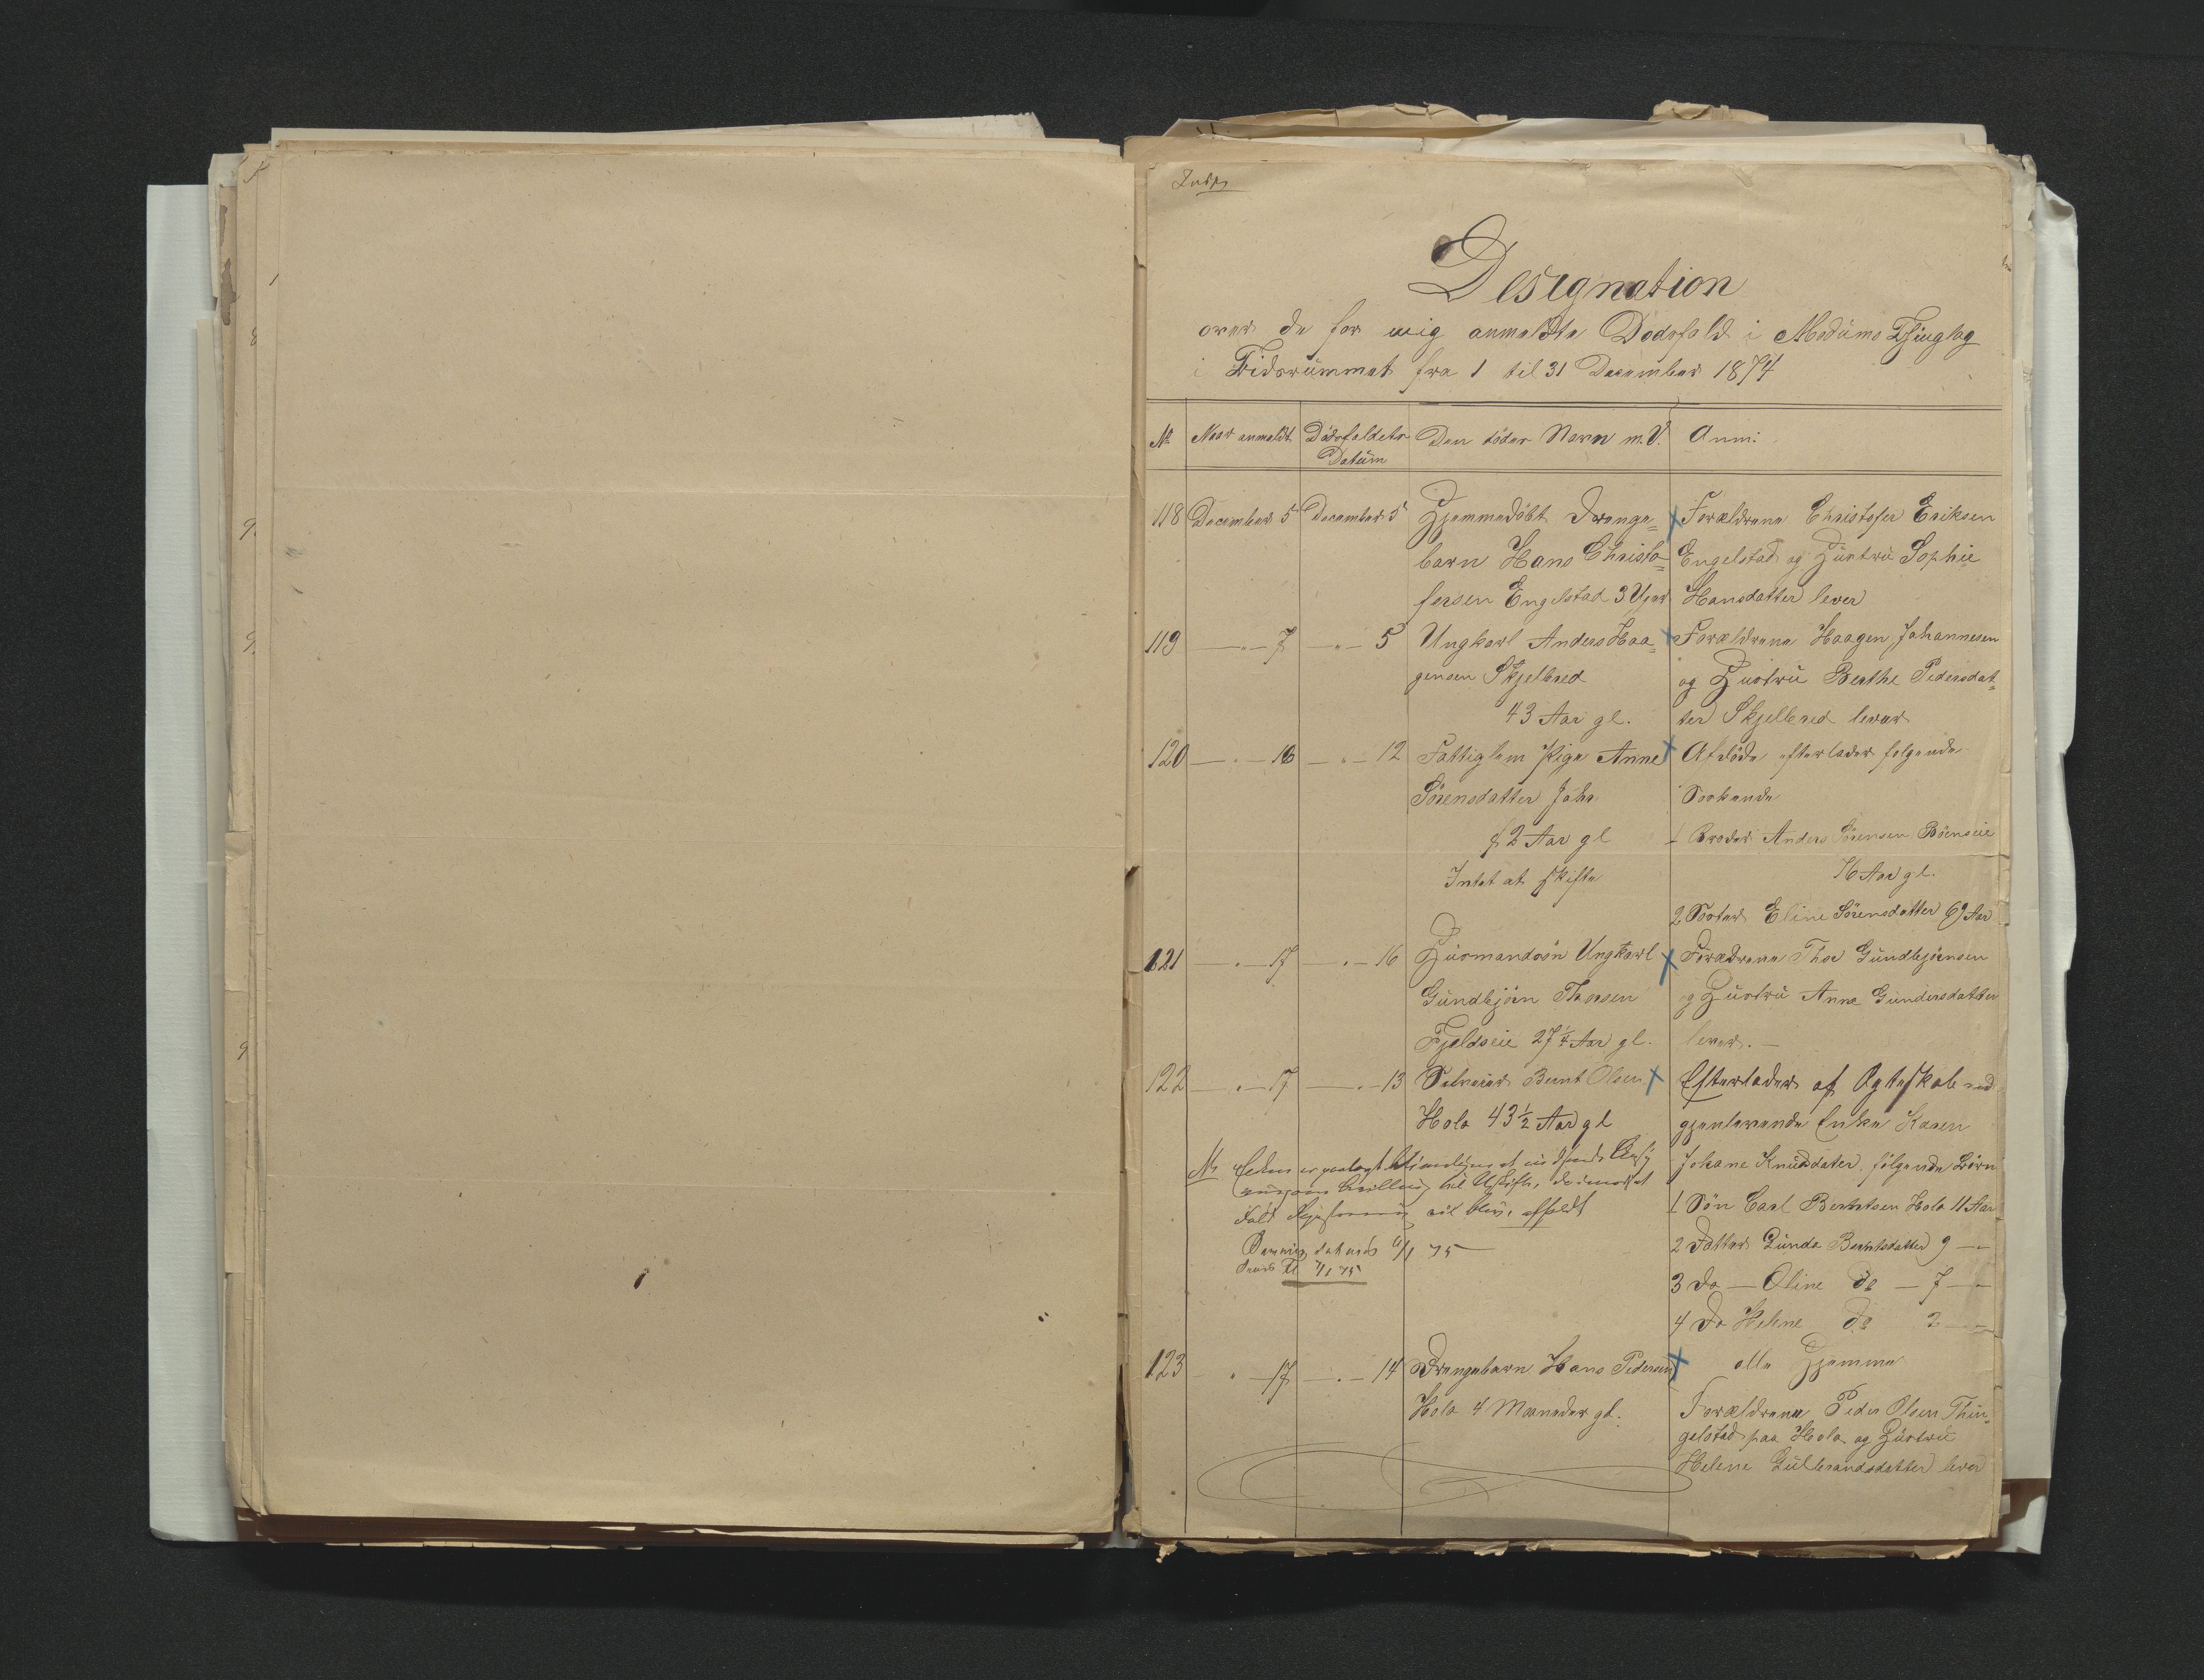 Designation
over de for mig anmeldte Dødsfald i Modums Thinglag
i Tidsrummet fra 1 til 31 December 1874
No Naar anmeldt Dødsfaldets Datum Den dødes Navn m. V. Anm:
118 December 5 December 5 Hjemmedøbt Drenge=
barn Hans Christo=
fersen Engelstad 3 Uger
Forældrene Christofer Eriksen
Engelstad og Hustru Sophie
Hansdatter lever
119 — " — 7 — " — 5 Ungkarl Anders Haa=
gensen Skjelbred
43 Aar gl.
Forældrene Haagen Johannesen
og Hustru Berthe Pedersdat=
ter Skjelbred lever
120 — " — 16 — " — 12 Fattiglem Pige Anne
Sørensdatter
72 Aar gl
Intet at skifte
Afdøde efterlader følgende
Søskende
1 Broder Anders Sørensen
76 Aar gl.
2 Søster Eline Sørensdatter 69 Aar
121 — " — 17 — " — 16 Husmandsøn Ungkarl
Gundbjørn Thorsen
Fjeldseie 27 1/4 Aar gl.
Forældrene Thor Gundbjørnsen
og Hustru Anne Gundersdatter
lever. —
122 — " — 17 — " — 13 Selveier Bernt Olsen
Hole 43 1/2 Aar gl
Efterlader af Ægteskab med
gjenlevende Enke Karen
Johane Knudsdater, følgende Børn
1 Søn Carl Berntsen Hole 11 Aar
2 Datter Gunda Berntsdatter 9 — "
3 do — Oline do — 7 — "
4 do Helene do 2 — "
alle Hjemme
Enken er paalagt
til
75
123 — " — 17 — " — 14 Drengebarn Hans Pedersen
Hole 4 Maaneder gl.
Forældrene Peder Olsen Thin=
gelstad paa Hole og Hustru
Helene Gulbrandsdatter lever